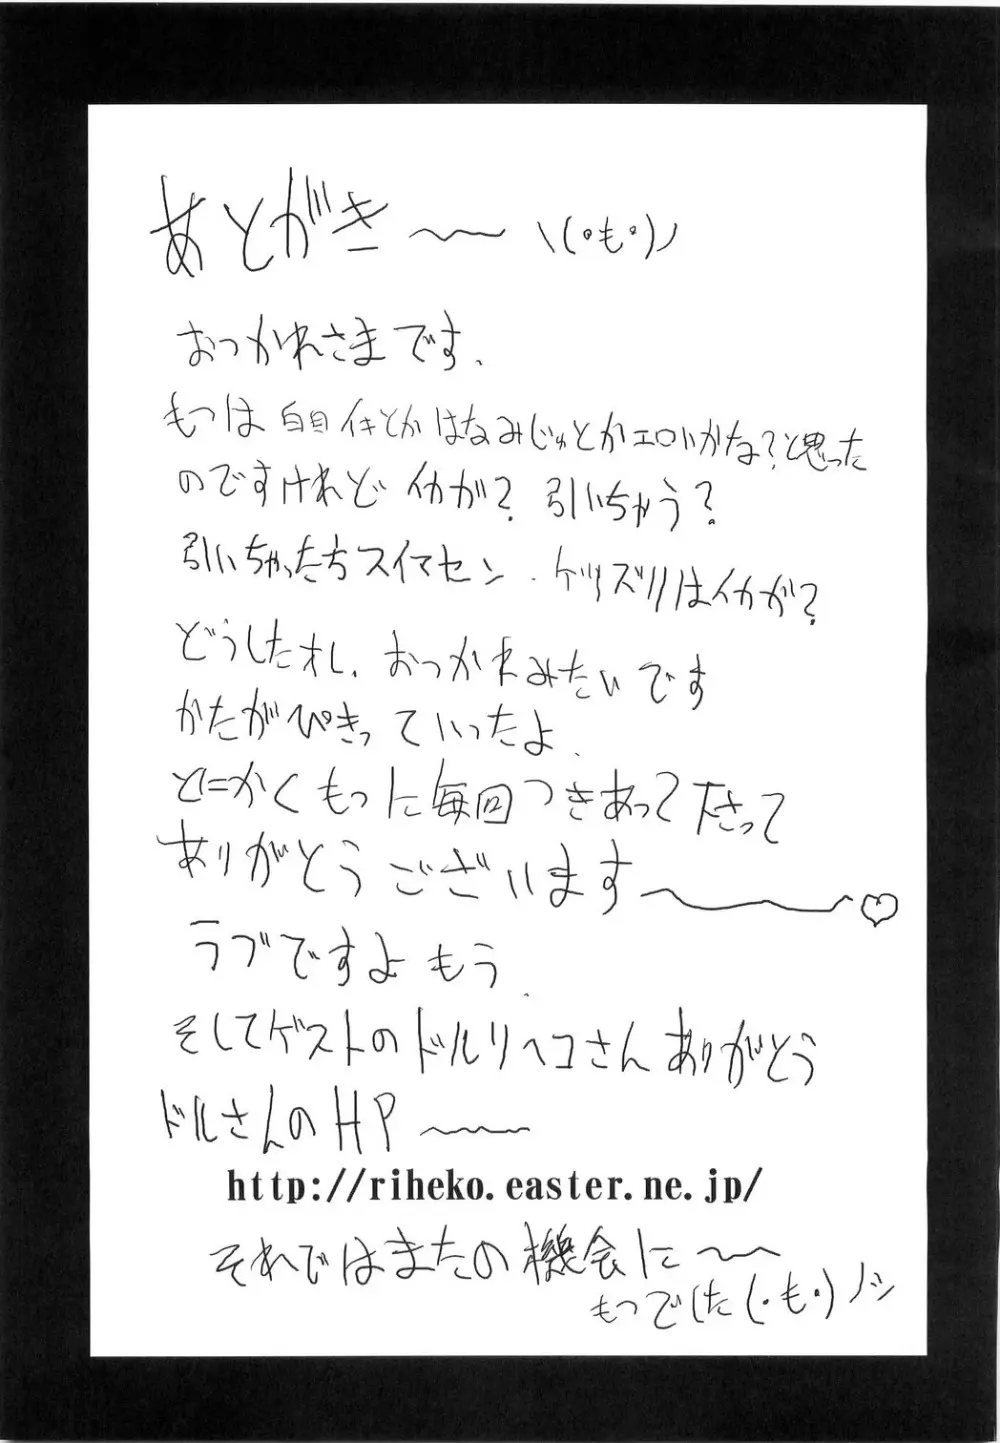 あとがき〜 \(・も・)ノ
おつかれさまです.
もつは白目イキとかはなみじゅとかエロいかな?と思った
のですけれど イカが? 引いちゃう?
引いちゃったらスイマセン. ケツズリはイカが?
どうしたオレ. おつかれみたいです
かたがぴきっていったよ.
とにかくもつに毎回つきあって下さって
ありがとうございます〜♡
ラブですよもう.
そしてゲストのドルリヘコさんありがとう
ドルさんのHP〜
http://riheko.easter.ne.jp/
それではまたの機会に〜
もつでした(・も・)ノシ